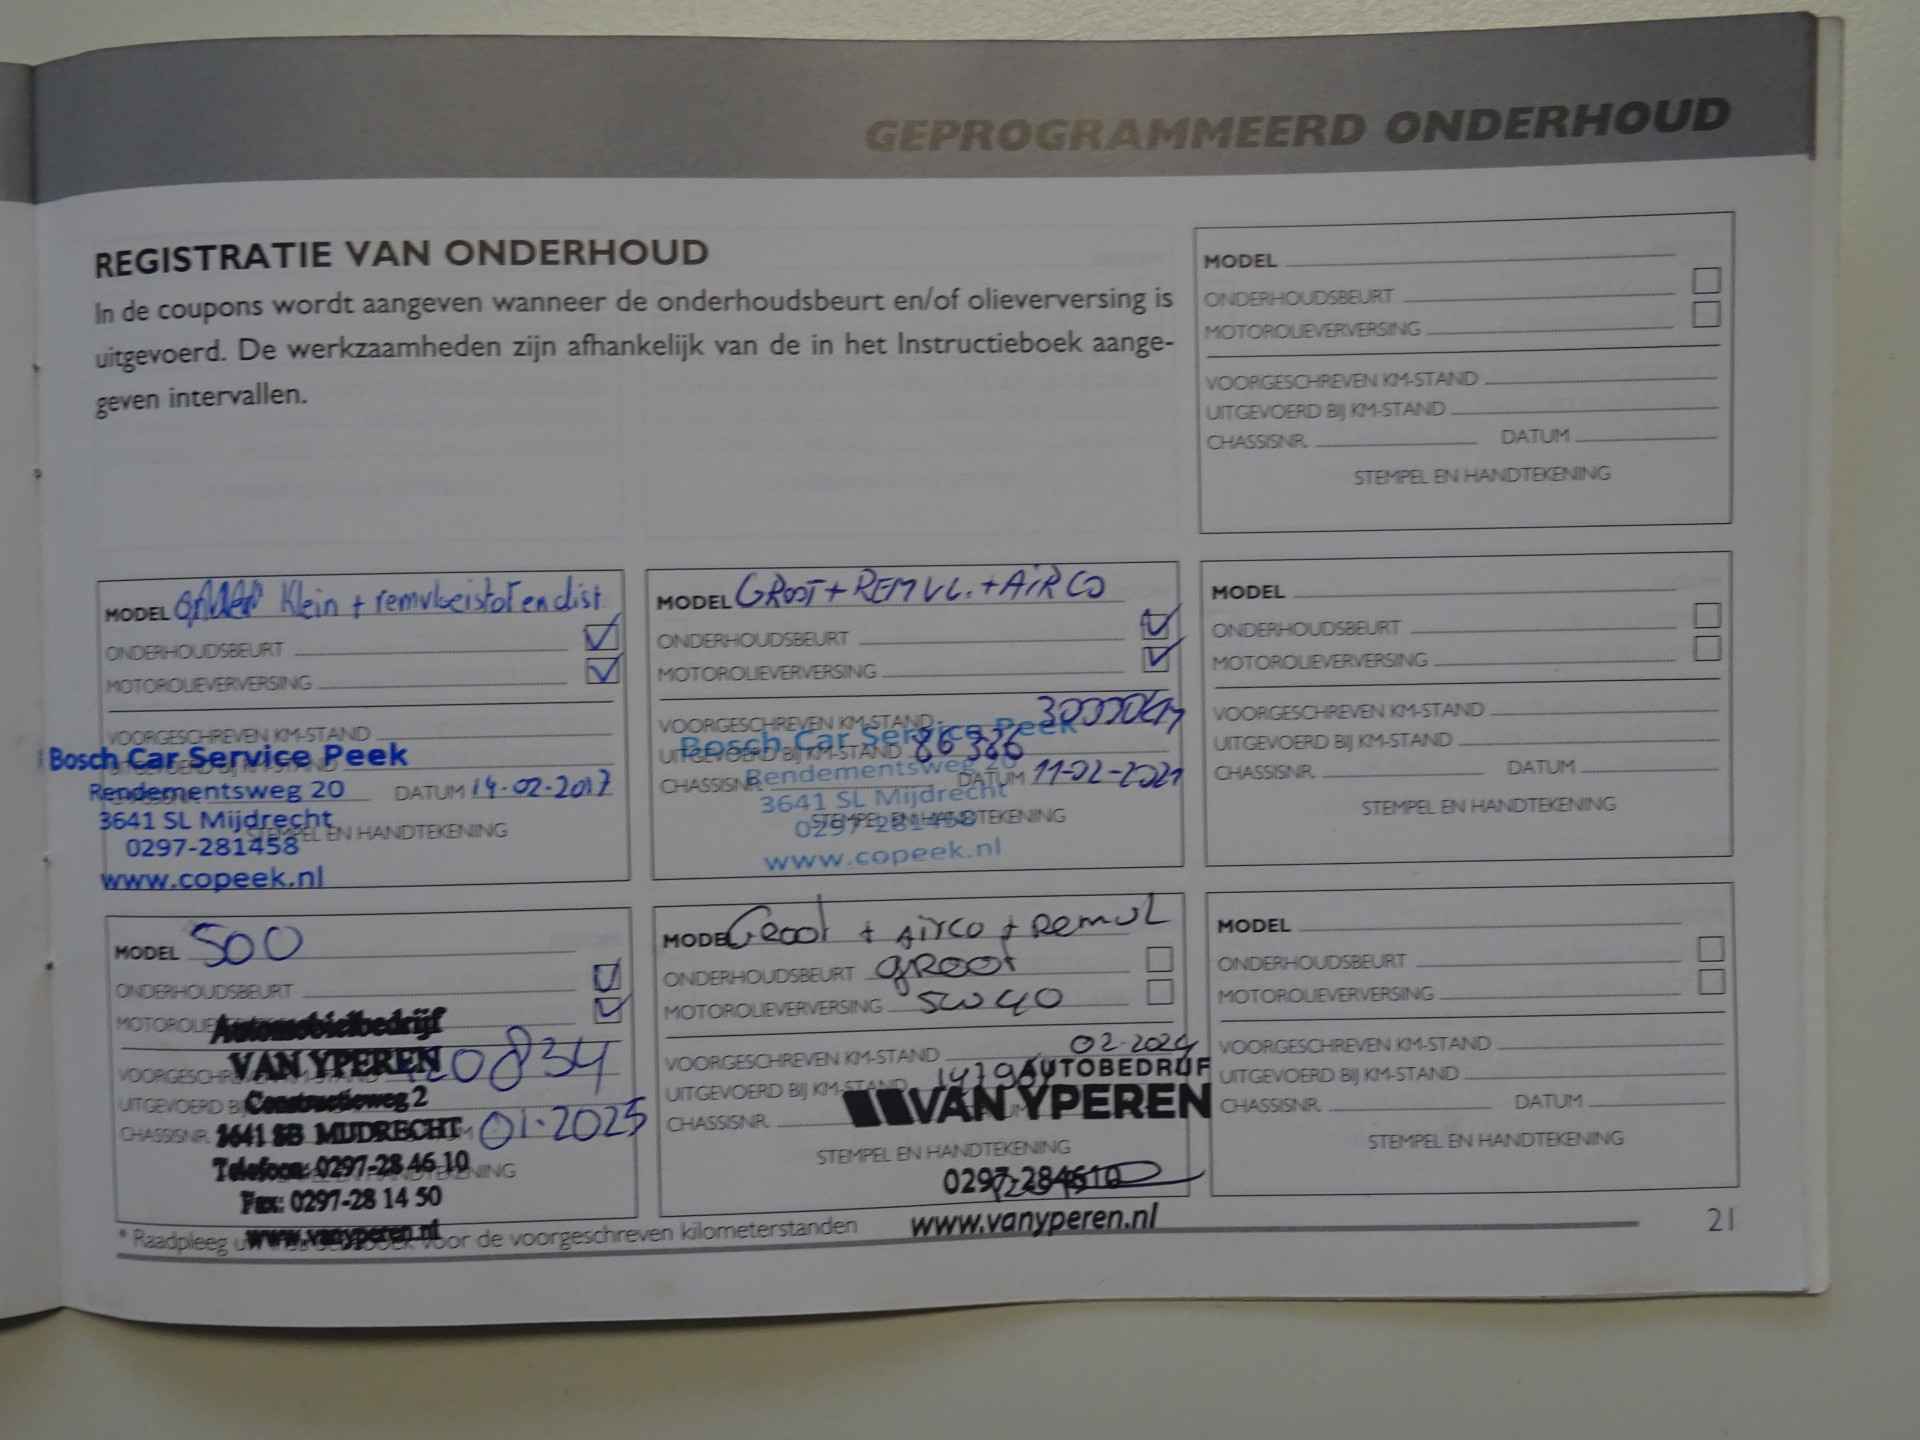 GEPROGRAMMEERD ONDERHOUD
REGISTRATIE VAN ONDERHOUD
In de coupons wordt aangeven wanneer de onderhoudsbeurt en/of olieverversing is
uitgevoerd. De werkzaamheden zijn afhankelijk van de in het Instructieboek aange-
geven intervallen.
MODEL
ONDERHOUDSBEURT
MOTOROLIEVERVERSING
VOORGESCHREVEN KM-STAND
UITGEVOERD BIJ KM-STAND
CHASSISNR. DATUM
STEMPEL EN HANDTEKENING
MODEL Klein +
ONDERHOUDSBEURT
MOTOROLIEVERVERSING
VOORGESCHREVEN KM-STAND
Bosch Car Service Peek
Rendementsweg 20 DATUM 14-02-2017
3641 SL Mijdrecht
STEMPEL EN HANDTEKENING
0297-281458
www.copeek.nl
MODEL GROOT + REMVL. + AIRCO
ONDERHOUDSBEURT
MOTOROLIEVERVERSING
VOORGESCHREVEN KM-STAND 30000km
Bosch Car Service Peek
UITGEVOERD BIJ KM-STAND 86386
Rendementsweg 20
CHASSISNR. DATUM 11-02-2021
3641 SL Mijdrecht
0297-281458
STEMPEL EN HANDTEKENING
www.copeek.nl
MODEL
ONDERHOUDSBEURT
MOTOROLIEVERVERSING
VOORGESCHREVEN KM-STAND
UITGEVOERD BIJ KM-STAND
CHASSISNR. DATUM
STEMPEL EN HANDTEKENING
MODEL 500
ONDERHOUDSBEURT
Automobielbedrijf
VAN YPEREN
Constructieweg 2
3641 SB MIJDRECHT 01-2025
Telefoon: 0297-28 46 10
Fax: 0297-28 14 50
www.vanyperen.nl
MODEL Groot + Airco + Remvl
ONDERHOUDSBEURT groot
MOTOROLIEVERVERSING 5w40
VOORGESCHREVEN KM-STAND 02-2024
UITGEVOERD BIJ KM-STAND
AUTOBEDRIJF
VAN YPEREN
CHASSISNR.
STEMPEL EN HANDTEKENING
0297-284610
www.vanyperen.nl
MODEL
ONDERHOUDSBEURT
MOTOROLIEVERVERSING
VOORGESCHREVEN KM-STAND
UITGEVOERD BIJ KM-STAND
CHASSISNR. DATUM
STEMPEL EN HANDTEKENING
* Raadpleeg voor de voorgeschreven kilometerstanden
21